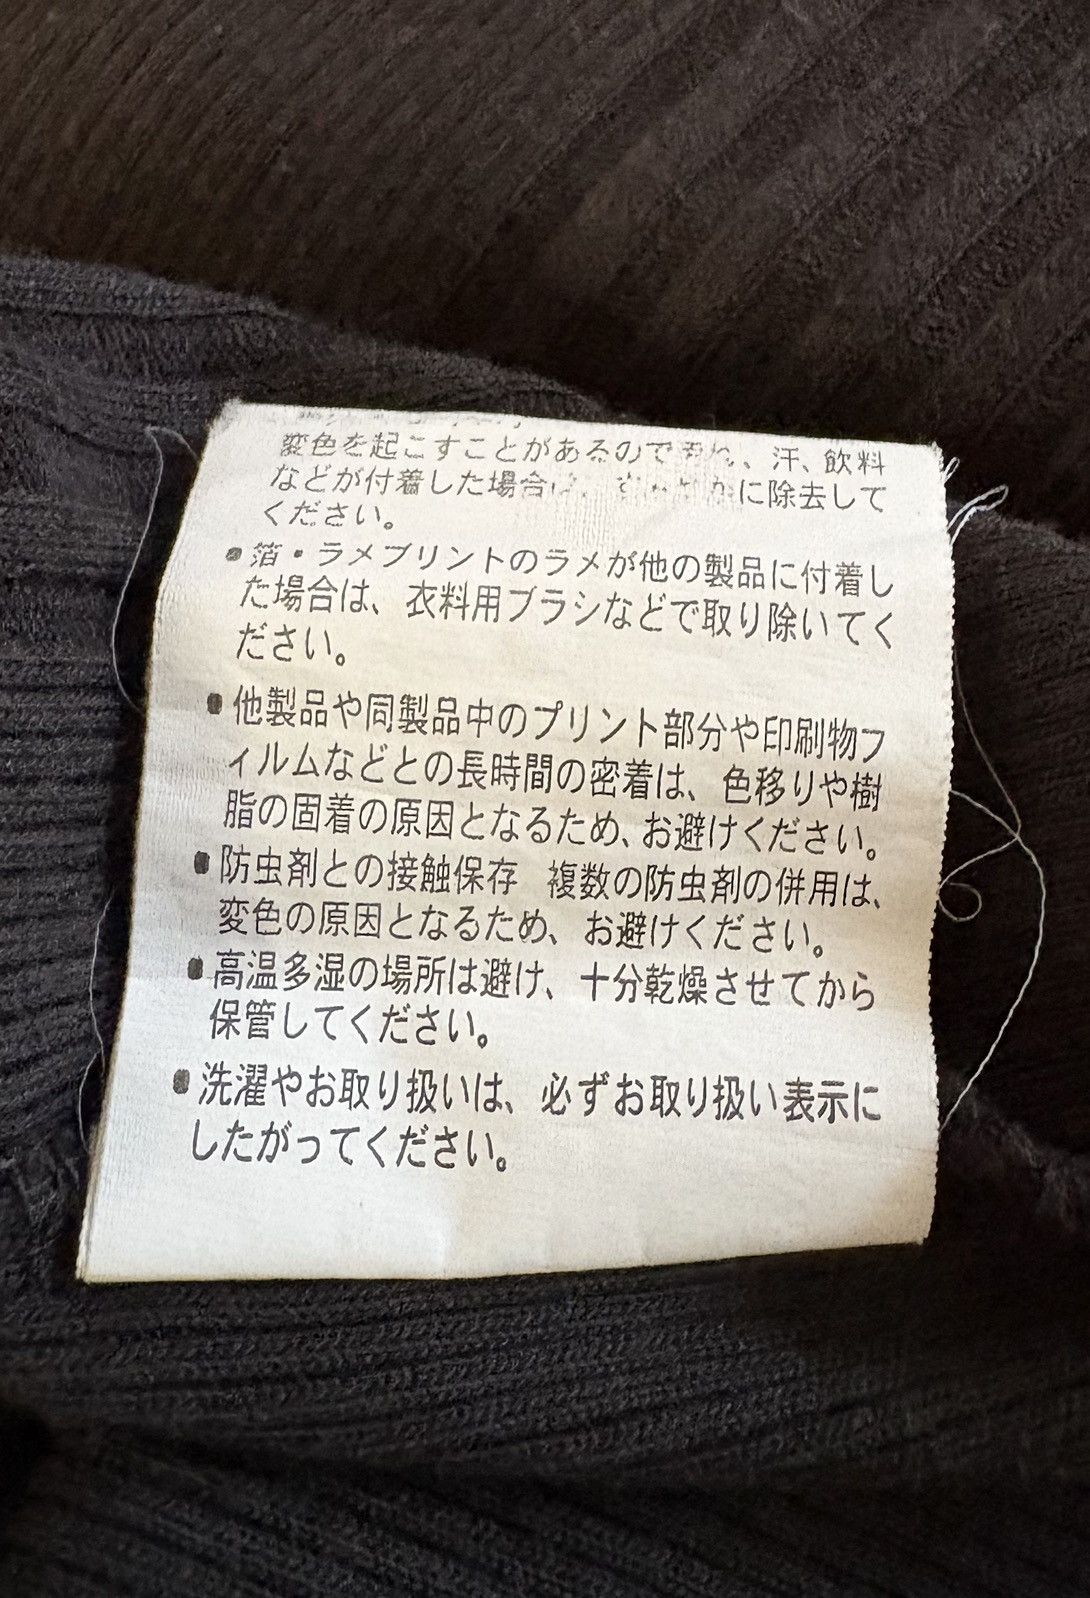 変色を起こすことがあるので汚れ、汗、飲料
などが付着した場合は、すみやかに除去して
ください。
■箔・ラメプリントのラメが他の製品に付着し
た場合は、衣料用ブラシなどで取り除いてく
ださい。
■他製品や同製品中のプリント部分や印刷物フ
ィルムなどとの長時間の密着は、色移りや樹
脂の固着の原因となるため、お避けください。
■防虫剤との接触保存 複数の防虫剤の併用は、
変色の原因となるため、お避けください。
■高温多湿の場所は避け、十分乾燥させてから
保管してください。
■洗濯やお取り扱いは、必ずお取り扱い表示に
したがってください。